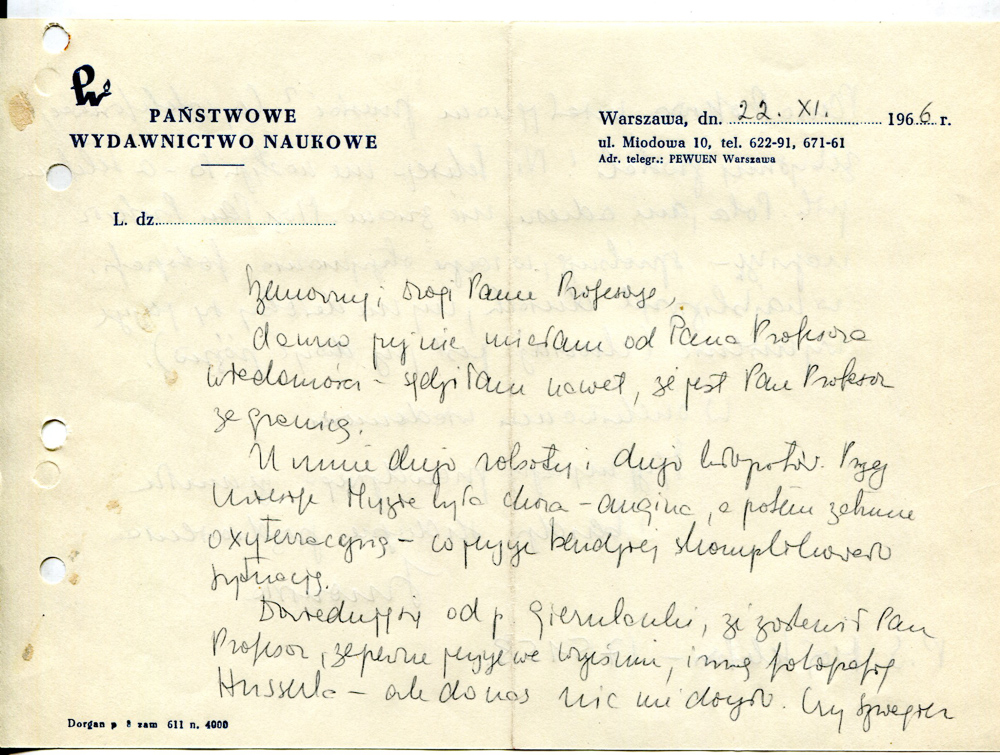 PAŃSTWOWE
WYDAWNICTWO NAUKOWE
Warszawa, dn. 22. XI. 1966 r.
ul. Miodowa 10, tel. 622-91, 671-61
Adr. telegr.: PEWUEN Warszawa
L. dz.
Szanowny i Drogi Panie Profesorze,
dawno już nie miałam od Pana Profesora
wiadomości – sądziłam nawet, że jest Pan Profesor
za granicą.
U mnie dużo roboty i dużo kłopotów. Przez
miesiąc była chora – angina, a potem zatrucie
oxyterracyną – co jeszcze bardziej skomplikowało
sytuację.
Dowiedziałam się od p. Gierulanki, że zostawił Pan
Profesor, zapewne jeszcze we wrześniu, inną fotografię
Husserla – ale do nas nic nie doszło. Czy
Dorgan p 8 zam 611 n. 4000